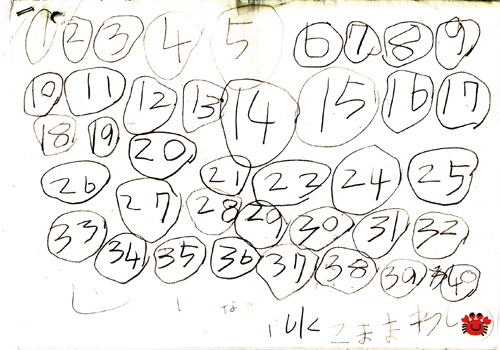 1 2 3 4 5 6 7 8 9
10 11 12 13 14 15 16 17
18 19 20 21 22 24 25
26 27 28 29 30 31 32
33 34 35 36 37 38 39 40
な
こままわし